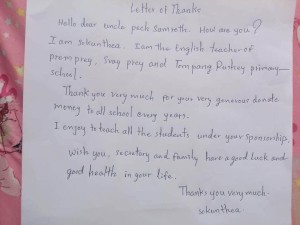 Letter of Thanks
Hello dear uncle pech samreth. How are you?
I am sokunthea. I am the English teacher of
prom prey, Svay prey and Trapang Russey primary
school.
Thank you very much for your very generous donate
money to all school every years.
I enjoy to teach all the students under your sponsorship.
wish you, secretary and family have a good luck and
good health in your life.
Thanks you very much
sokunthea